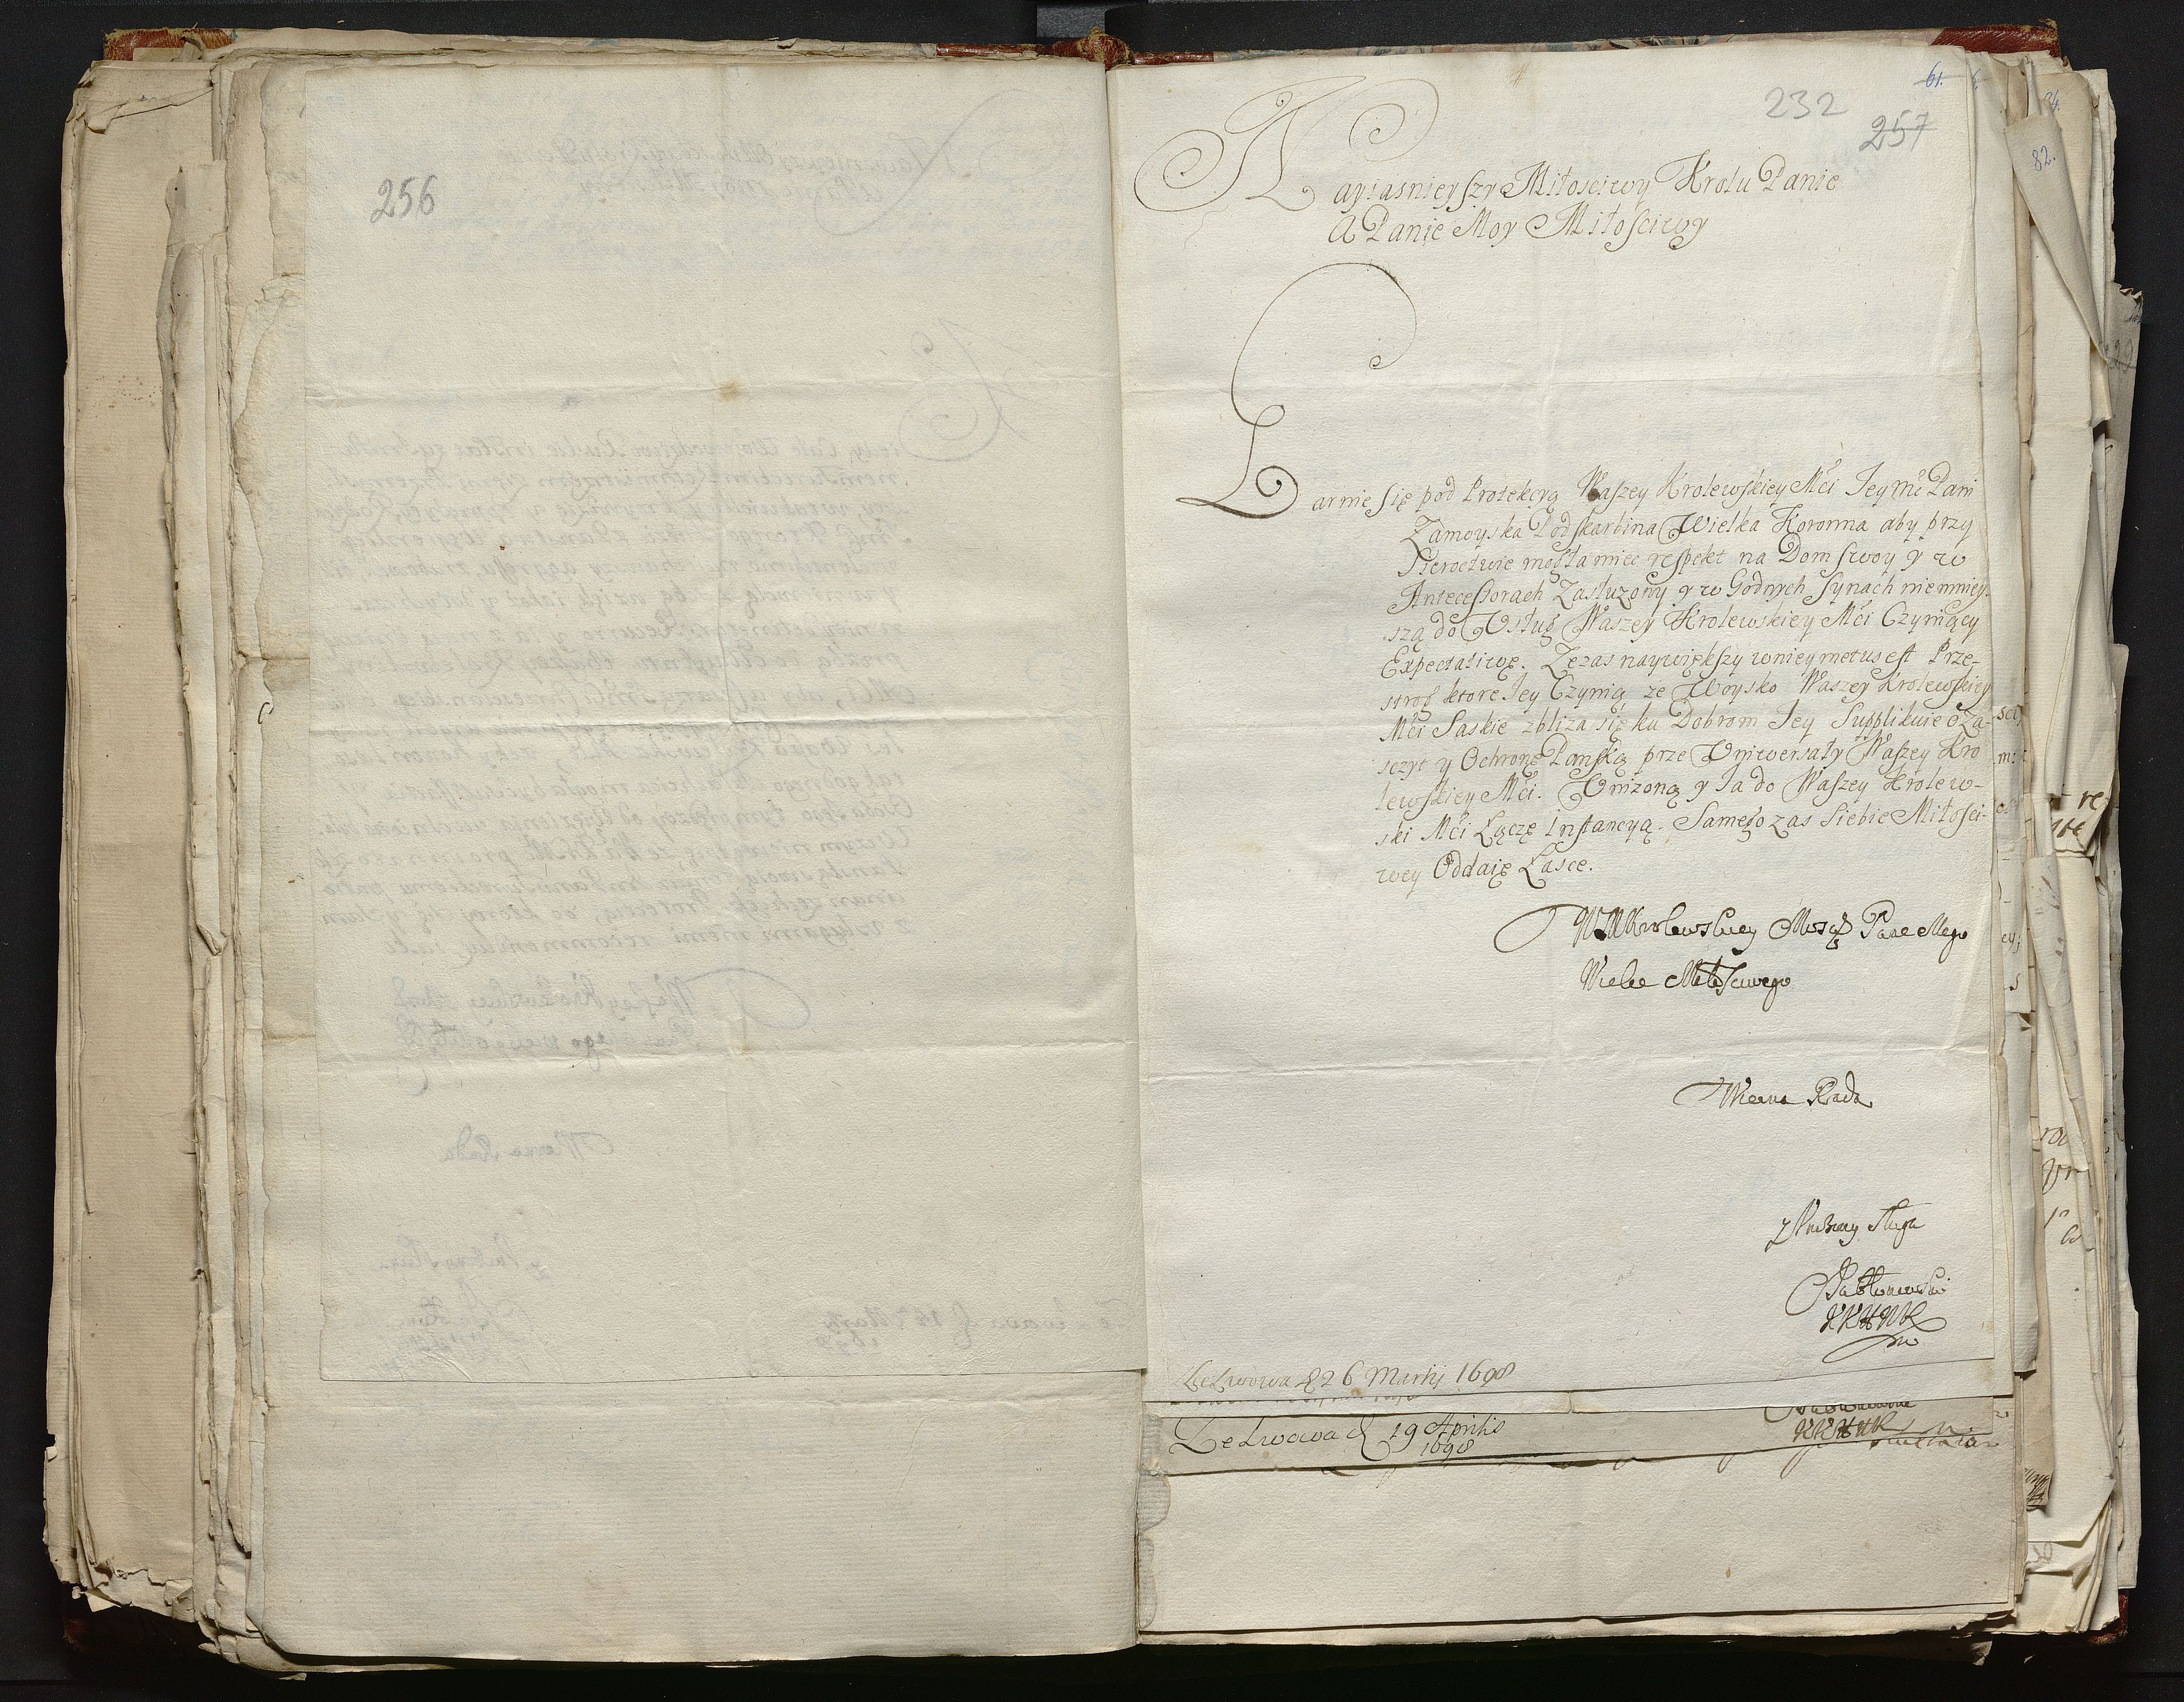 256
61.
232
257
82.
Nayiasnieyszy Miłosciwy Krolu Panie
A Panie Moy Miłosciwy
Garnie się pod Protekcyą Waszey Krolewskiey Mći Jey Mć Pani
Zamoyska Podskarbina Wielka Koronna aby przy
Sieroctwie mogła miec respekt na Dom swoy y w
Antecessorach Zasłuzony y w Godnych Synach niemniey
szą do Usług Waszey Krolewskiey Mći Czyniący
Expectatiwę. Zezas naywiększy wniey metus est Prze-
strog ktore Jey Czynią ze Woysko Waszey Krolewskiey
Mći Saskie zbliza się ku Dobrom Jey Supplikuie o Za-
sczyt y Ochronę Panską prze Uniwersały Waszey Kro
lewskiey Mći. Unizoną y Ja do Waszey Krolew-
ski Mći Łączę Instancyą. Samego zas Siebie Miłosci-
wey Oddaię Łasce.
WM Krolewskiey Mosci Pana Mego
Wielce Miłosciwego
Wierna Rada
y Unizony Sługa
Jabłonowski
KKHWK
Ze Lwowa d 26 Martij 1698
Ze Lwowa d 19 Aprilis
1698
KKHWK